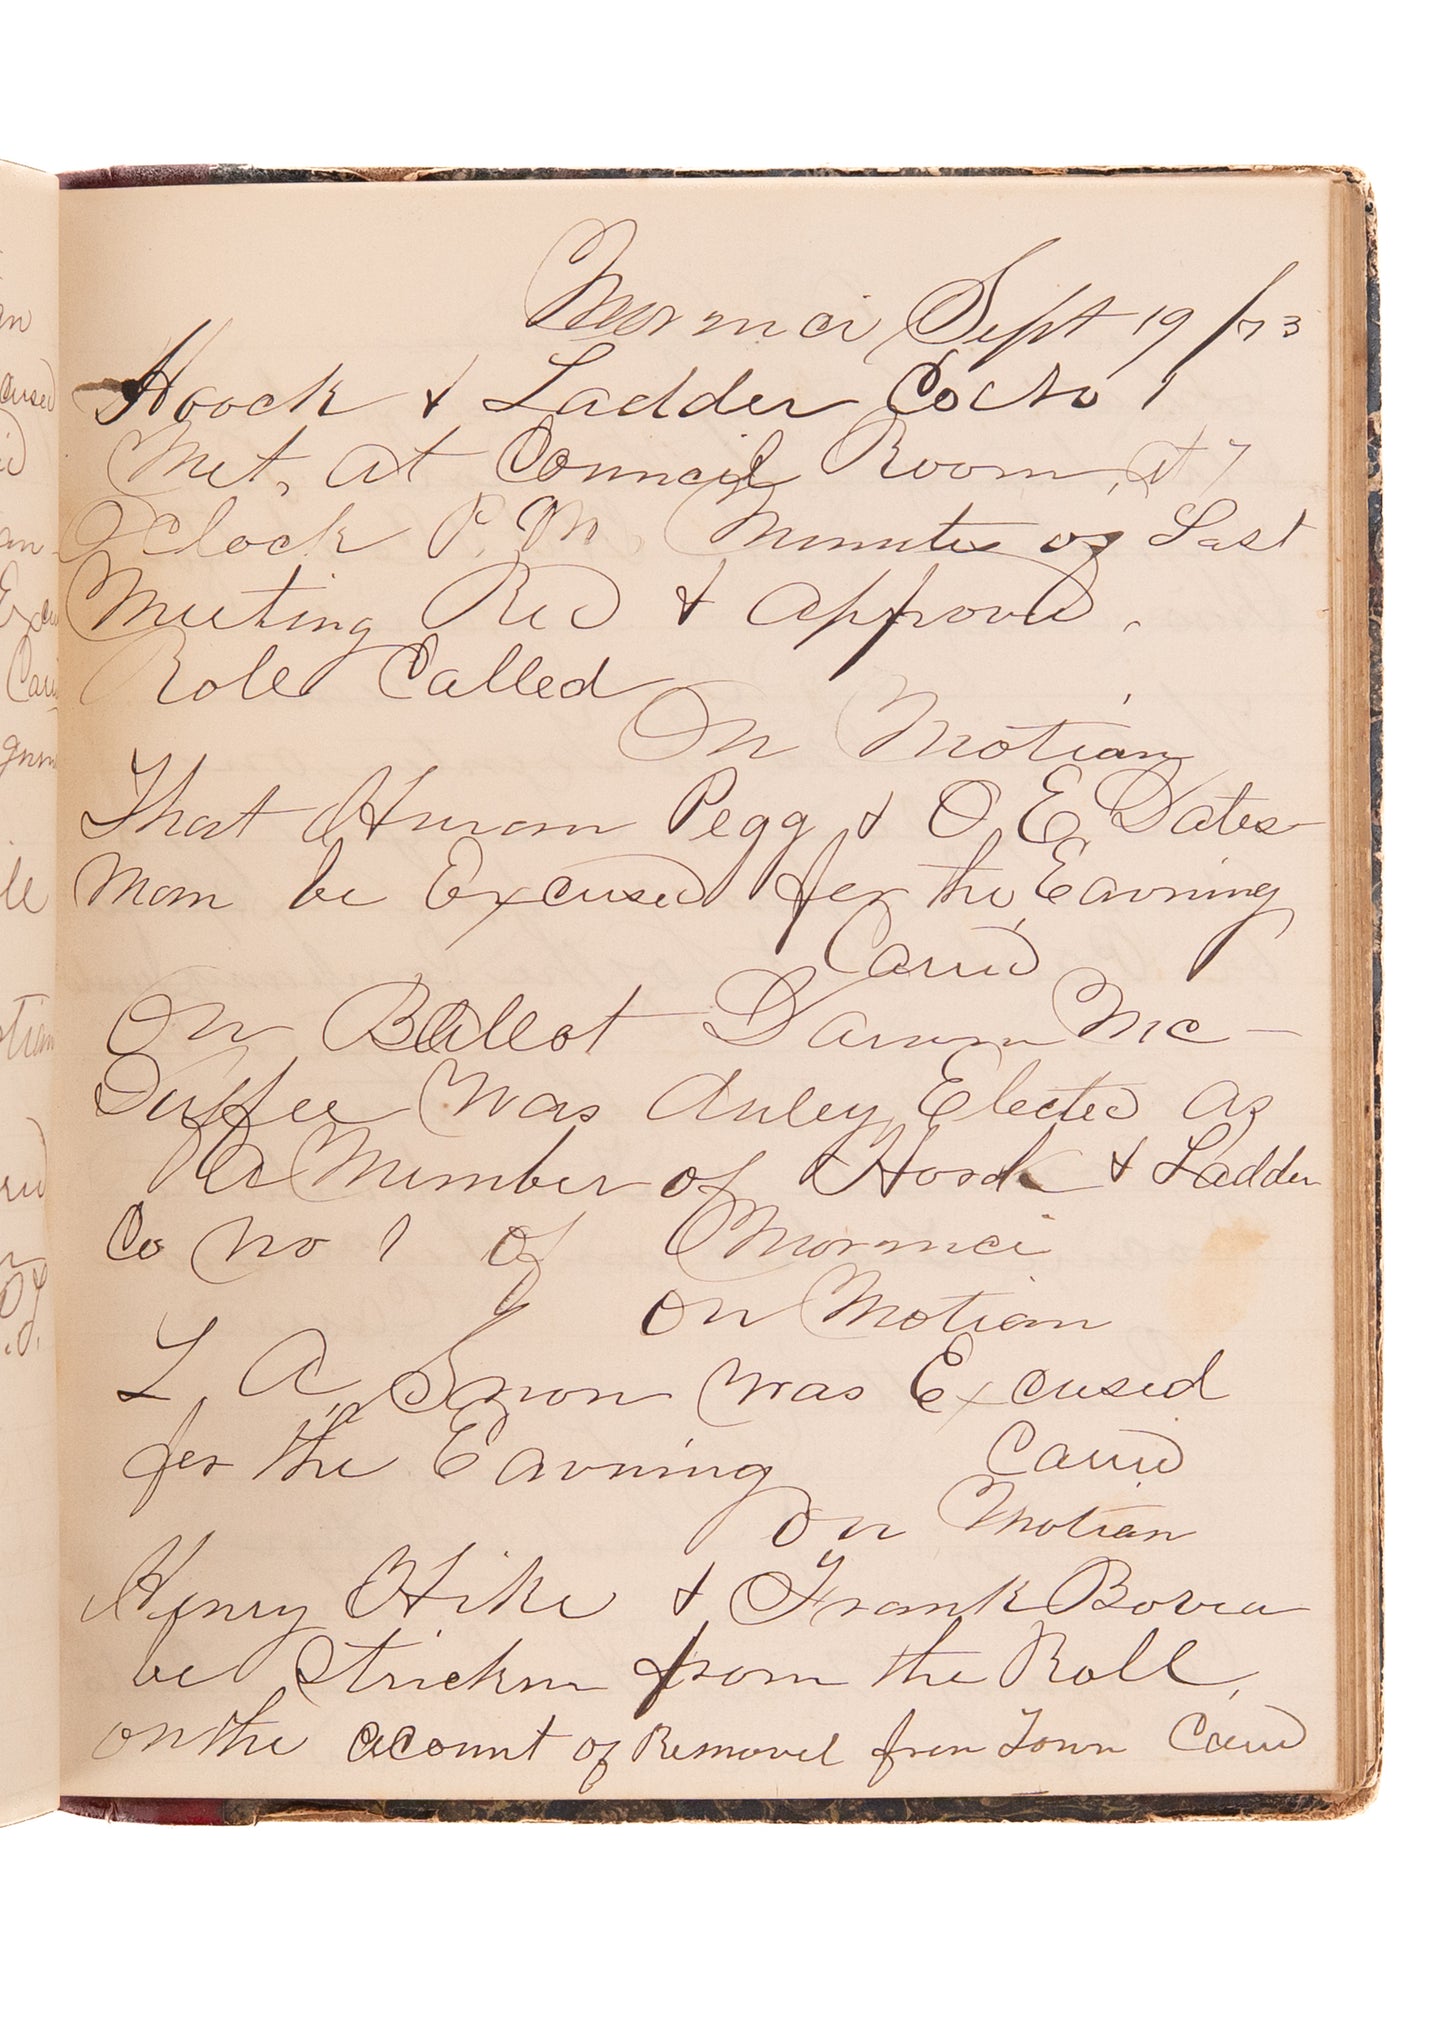 Mormci Sept 19 /73
Hoock & Ladder Co No 1
Met, at Council Room, at 7
Oclock P. M. Minutes of Last
Meeting Red & Approvd.
Role Called
On Motion
That Hiram Pegg & O E Dates
mom be Excused for the Eavning
Carrid
On Ballot Mc-
Duffee was duley Elected as
a Member of Hook & Ladder
Co No 1 of Mormci
On Motion
L. A. Snow was Excused
for the Eavning Carrid
On Motion
Henry Hike & Frank Bovea
be Strickn from the Roll,
on the acount of Removel from Town Carrid